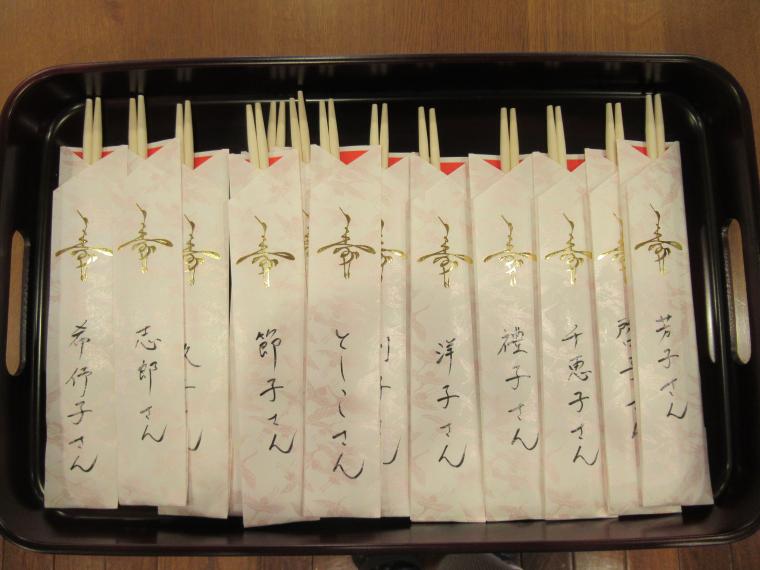 寿
希伊子さん
寿
志郎さん
寿
寿
節子さん
寿
としこさん
寿
寿
洋子さん
寿
禮子さん
寿
千恵子さん
寿
寿
芳子さん